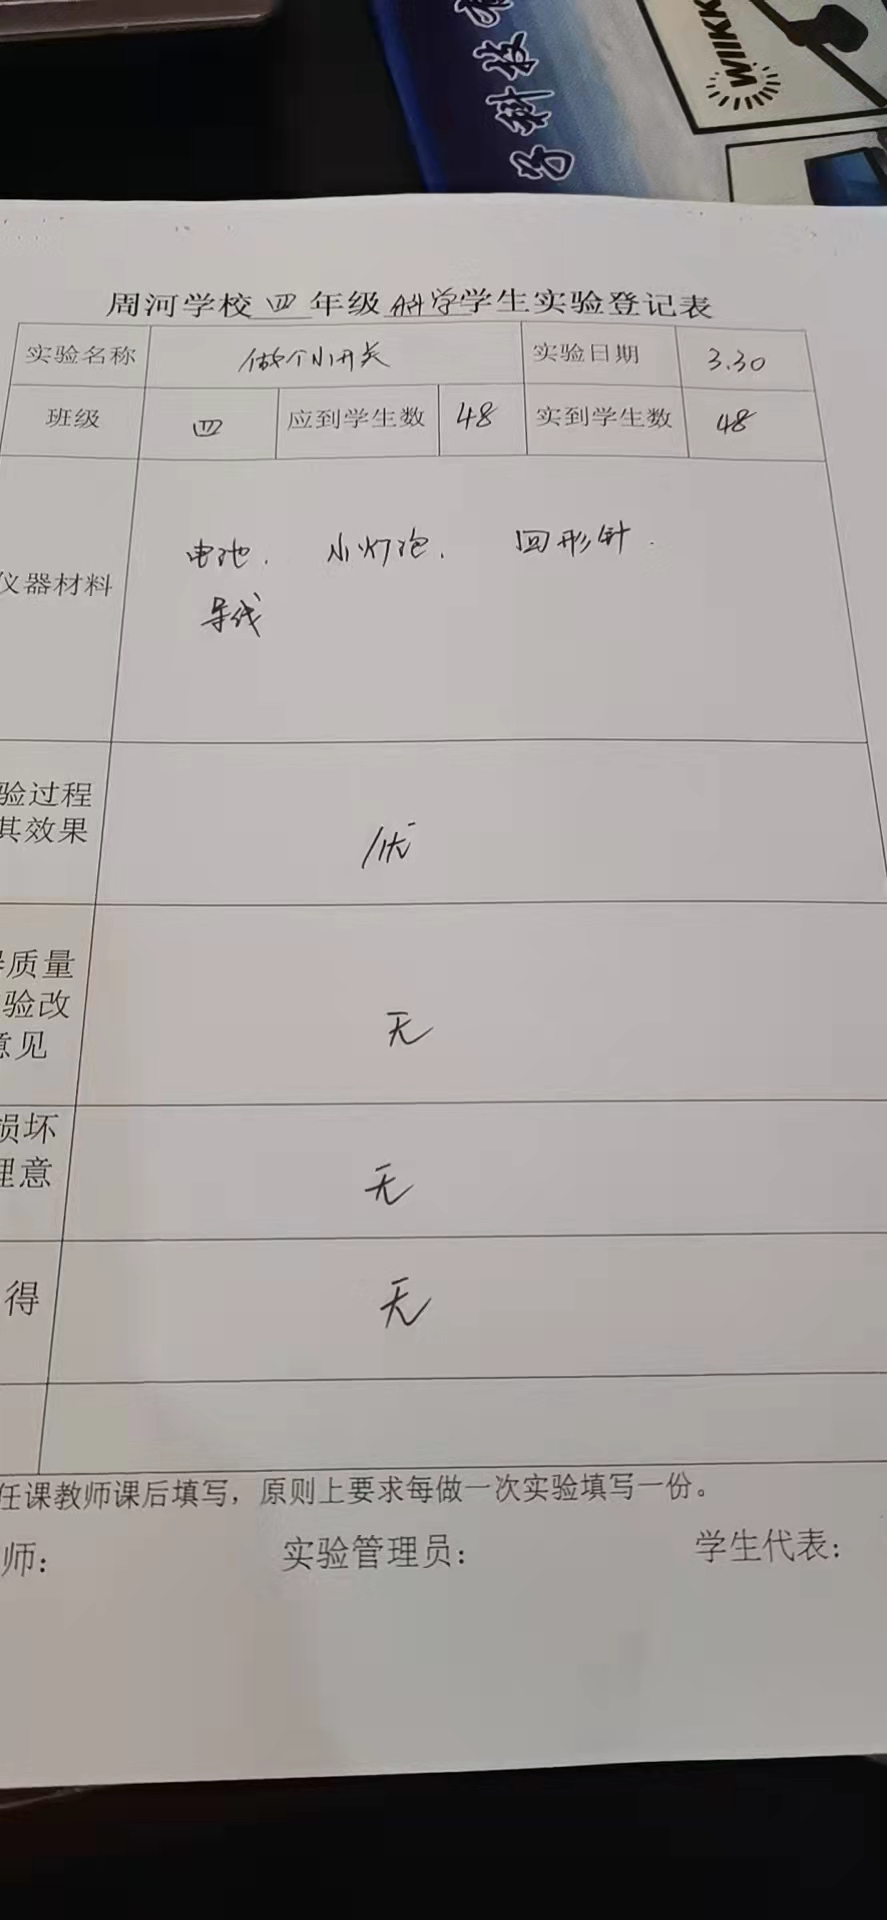 各科技
WIKK
周河学校 四 年级 科学 学生实验登记表
实验名称 做个小开关 实验日期 3.30
班级 四 应到学生数 48 实到学生数 48
仪器材料 电池. 小灯泡. 回形针.
导线
验过程
其效果
优
质量
验改
意见
无
损坏
理意
无
得 无
任课教师课后填写，原则上要求每做一次实验填写一份。
师： 实验管理员： 学生代表：